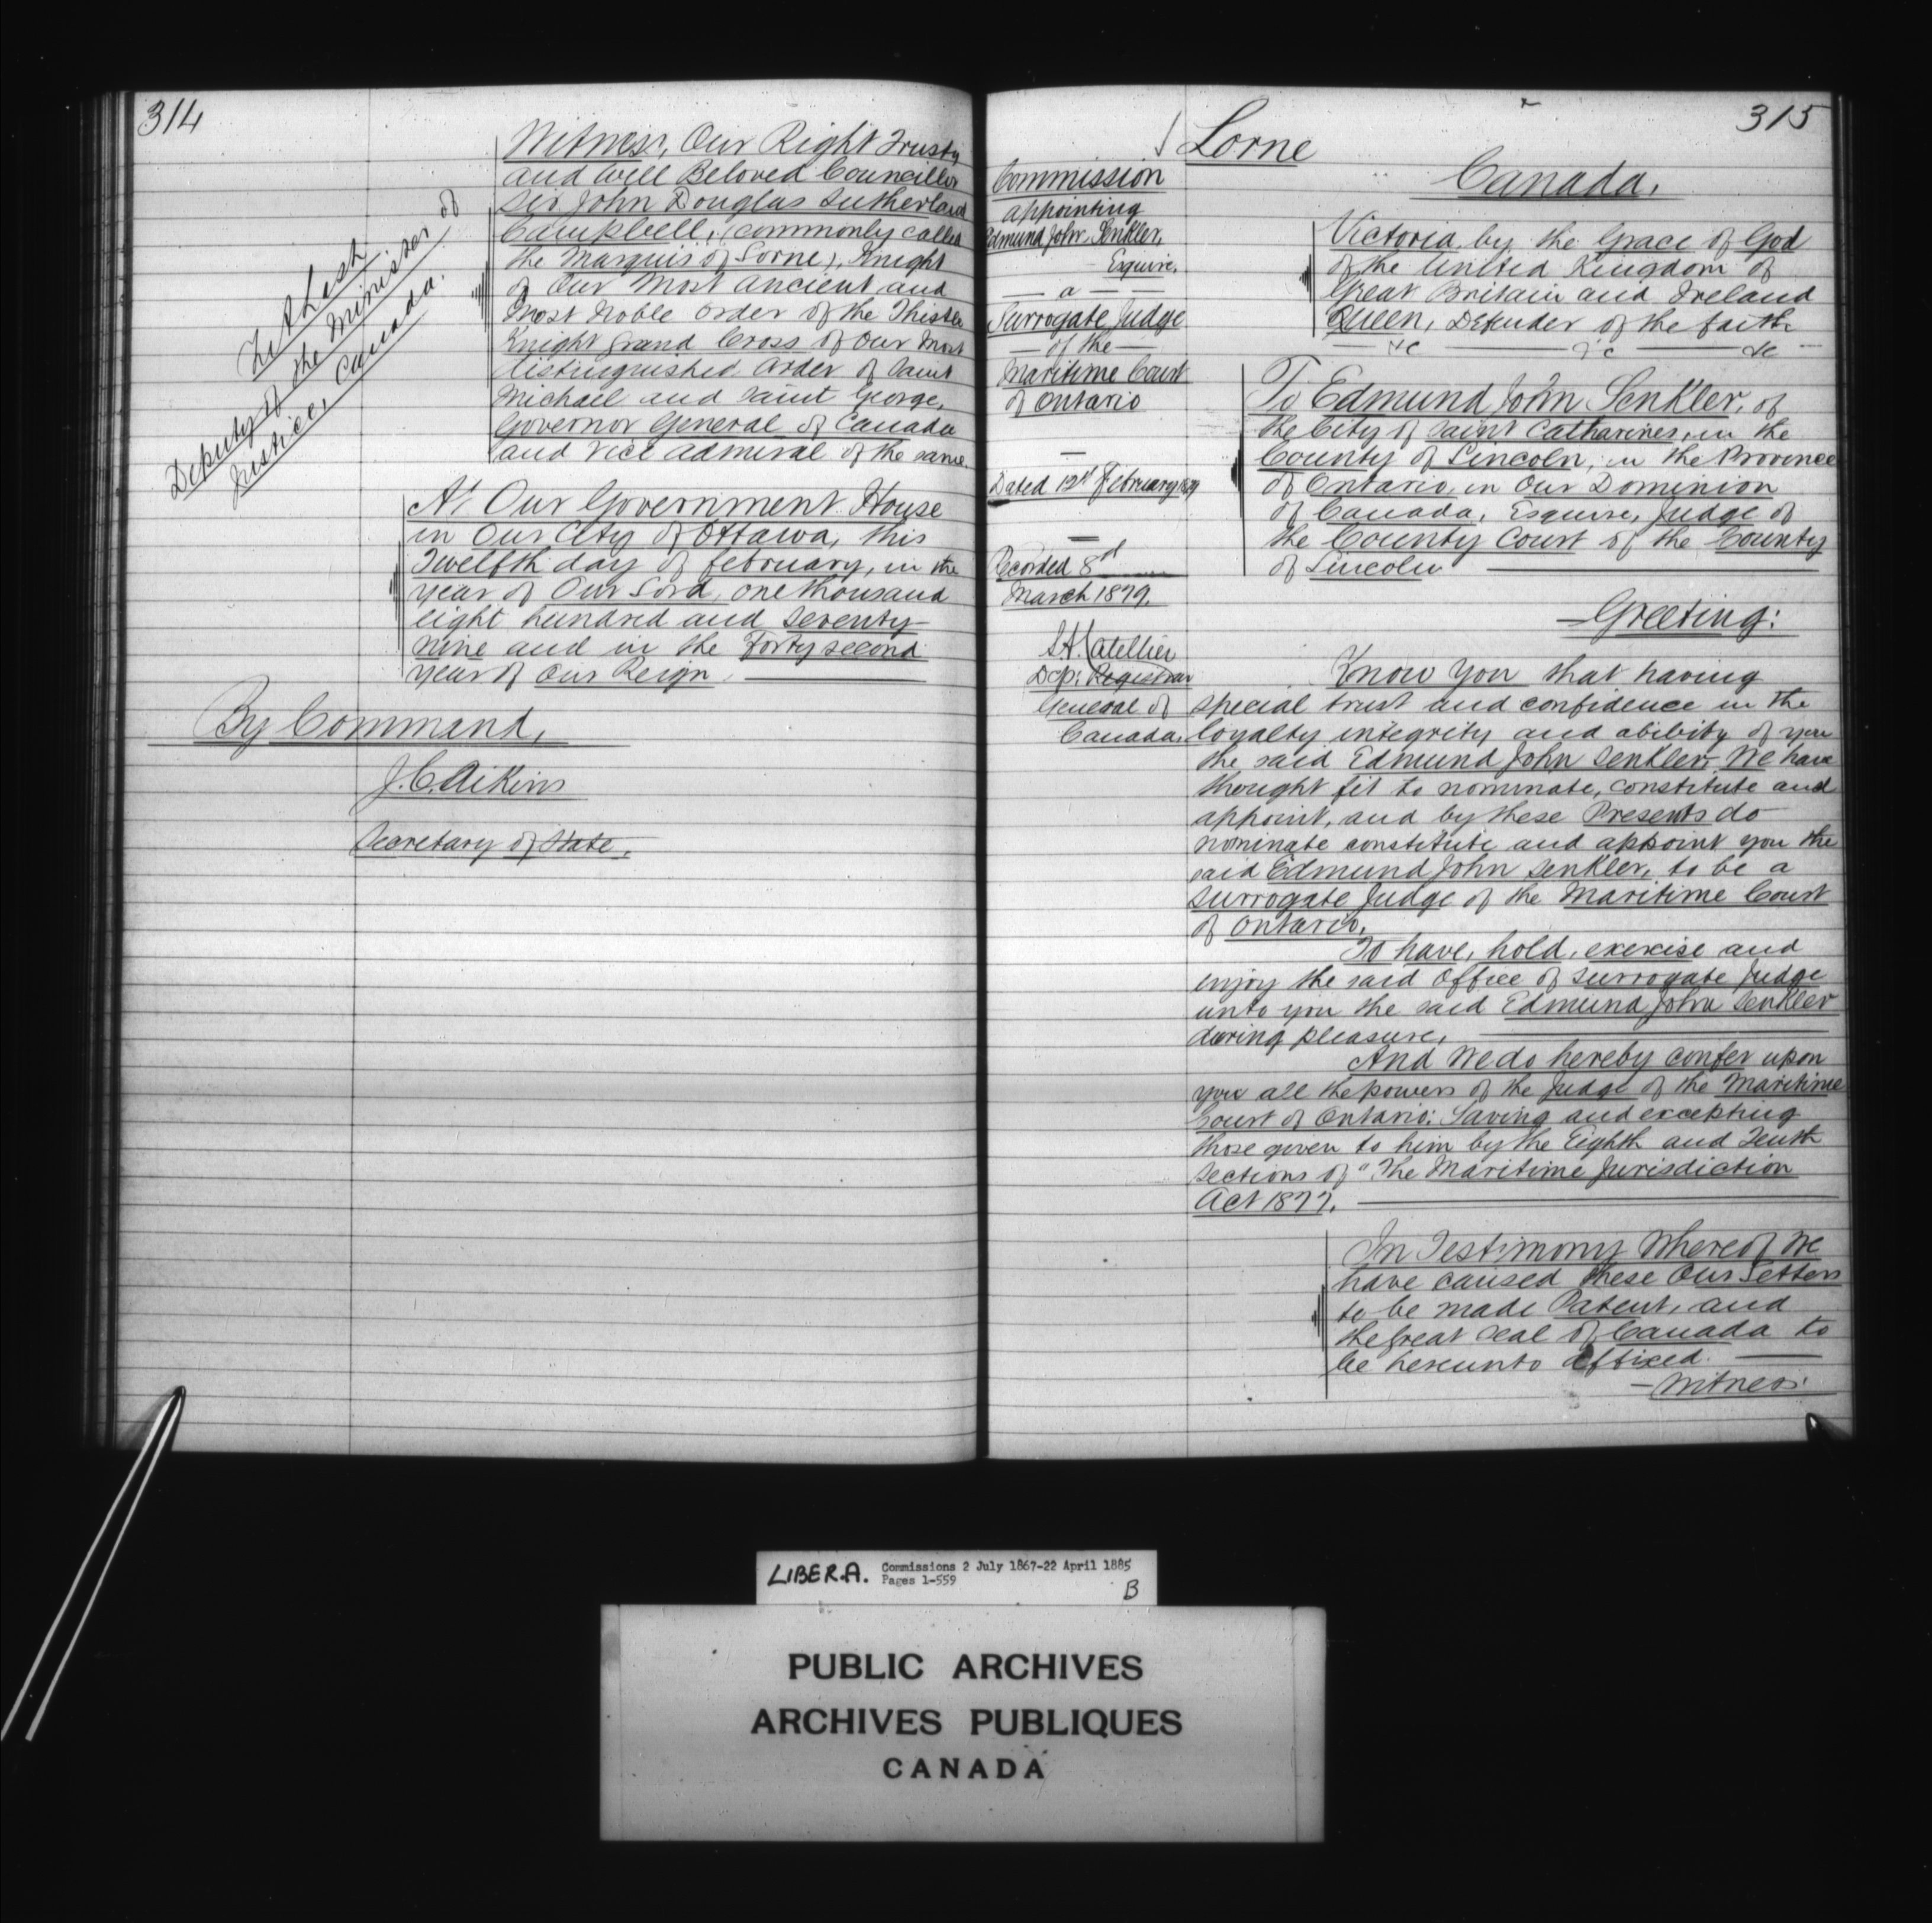 314
Witness, Our Right Trusty
and Well Beloved Councillor
Sir John Douglas Sutherland
Campbell, (commonly called
the Marquis of Lorne), Knight
of Our Most Ancient and
Most Noble Order of the Thistle
Knight Grand Cross of Our Most
distinguished Order of Saint
Michael and Saint George,
Governor General of Canada
and Vice Admiral of the same.
Deputy of the Minister of
Justice, Canada.
At Our Government House
in Our City of Ottawa, this
Twelfth day of February, in the
year of Our Lord, one thousand
eight hundred and seventy
nine and in the Forty second
year of Our Reign.
By Command,
J.C. Aikins
Secretary of State.
315
Lorne
Canada.
Commission
appointing
Edmund John Senkler,
Esquire,
a
Surrogate Judge
of the
Maritime Court
of Ontario
Dated 12th February 1879
Recorded 8th
March 1879.
Dep: Registrar
General of
Canada.
Victoria, by the Grace of God
of the United Kingdom of
Great Britain and Ireland
Queen, Defender of the Faith
&c &c &c
To Edmund John Senkler, of
the City of Saint Catharines, in the
County of Lincoln, in the Province
of Ontario, in Our Dominion
of Canada, Esquire, Judge of
the County Court of the County
of Lincoln
Greeting:
Know You that having
special trust and confidence in the
loyalty integrity and ability of you
the said Edmund John Senkler, We have
thought fit to nominate, constitute and
appoint, and by these Presents do
nominate constitute and appoint you the
said Edmund John Senkler, to be a
Surrogate Judge of the Maritime Court
of Ontario.
To have, hold, exercise and
enjoy the said Office of Surrogate Judge
unto you the said Edmund John Senkler
during pleasure,
And We do hereby confer upon
you all the powers of the Judge of the Maritime
Court of Ontario: Saving and excepting
those given to him by the Eighth and Tenth
sections of "The Maritime Jurisdiction
Act 1877.
In Testimony Whereof We
have caused these Our Letters
to be made Patent, and
the Great Seal of Canada to
be hereunto affixed.
Witness:
LIBER.A. Commissions 2 July 1867-22 April 1885
Pages 1-559
B
PUBLIC ARCHIVES
ARCHIVES PUBLIQUES
CANADA